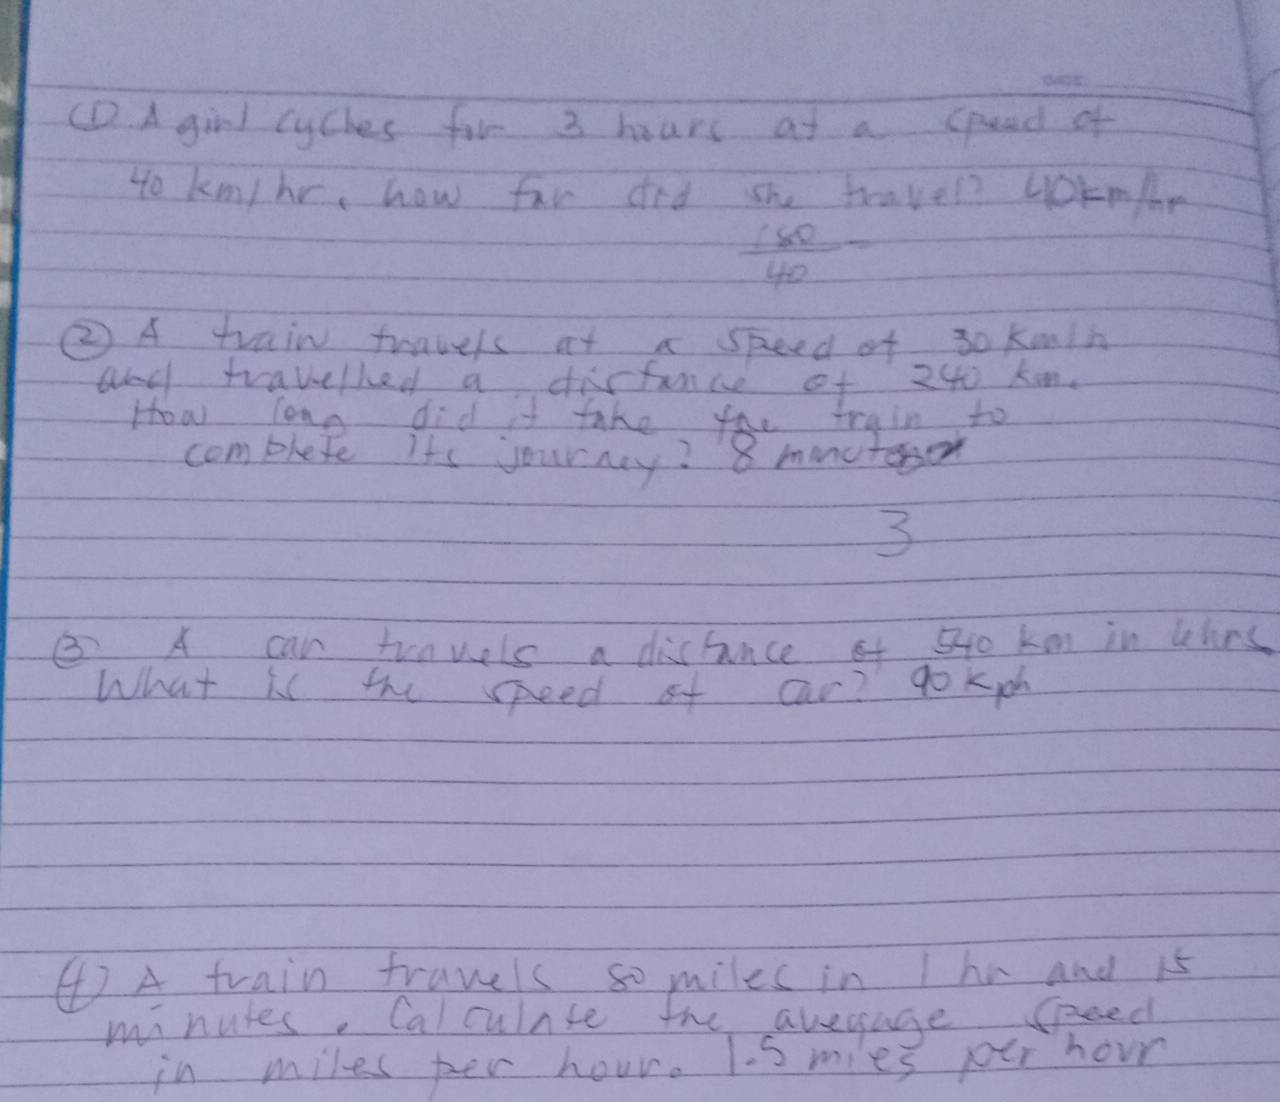 (1) A girl cycles for 3 hours at a speed of
40 km/hr. how far did she travel? 40km/hr
180
40
(2) A train travels at a speed of 30 Km/h
and travelled a distance of 240 km.
How long did it take the train to
complete its journey? 8
3
(3) A car travels a distance of 540 km in 6hrs
What is the speed of car? 90 Kph
(4) A train travels 80 miles in 1 hr and 15
minutes. Calculate the average speed
in miles per hour. 1.5 miles per hour